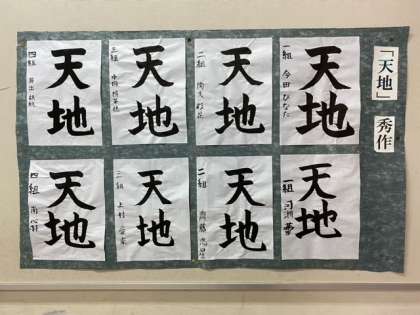 「天地」
秀作
天地
一組 今田ひなた
天地
二組
天地
三組
天地
四組
天地
一組 河瀬
天地
二組 齋藤
天地
三組 上村
天地
四組